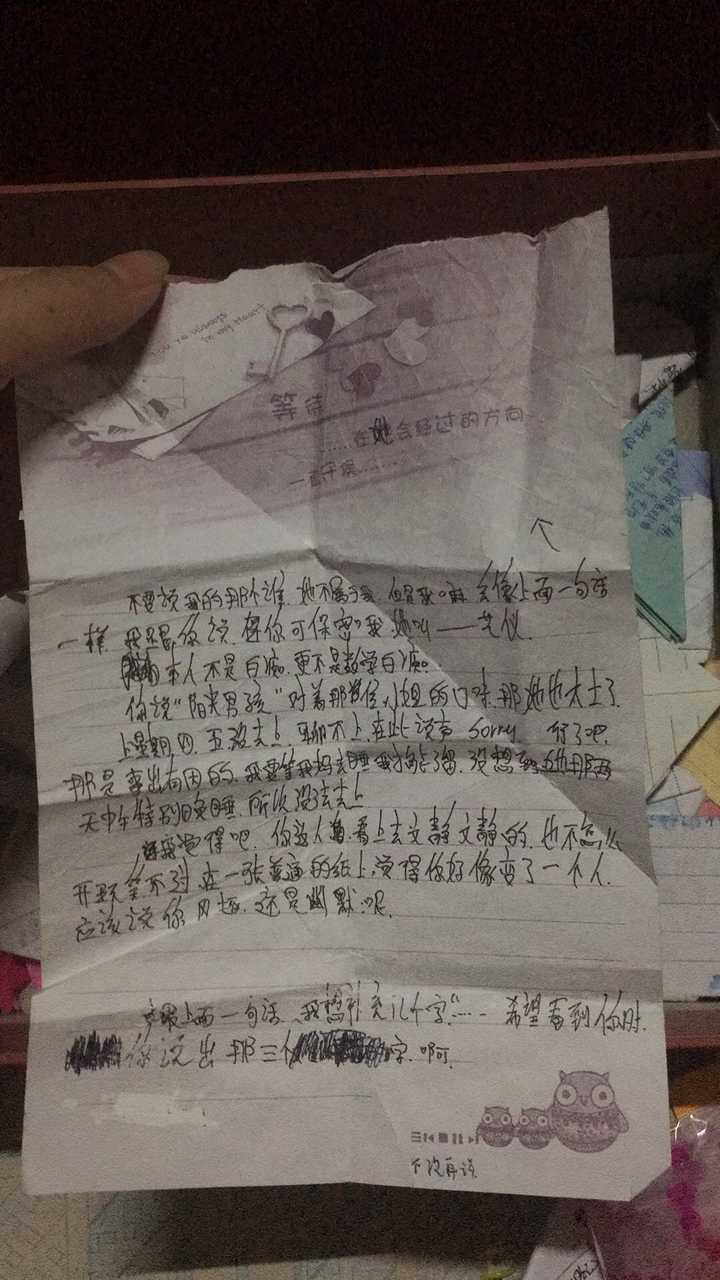 You're always
in my heart
等待
……在她会经过的方向
一直守候………
不要 我的那个谁.她不属于我.但是我嘛.会像上面一句话
一样.我只跟你说.你可保密哦.她叫——芝仪.
本人不是白痴.更不是数学白痴.
你说"阳光男孩"对着那位小姐的口味.那她也太土了.
上星期四.五没去上.聊不上.在此说声 sorry 行了吧.
那是事出有因的.我要等我妈去睡我才能溜.没想到她那两
天中午特别晚睡.所以没法去上
我觉得吧.你这人看上去文静文静的.也不怎么
开玩笑.不过在一张普通的纸上.觉得你好像变了一个人.
应该说你风趣.还是幽默呢.
最上面一句话.我想补充几个字"……希望看到你时.
你说出那三个字.啊
下次再谈